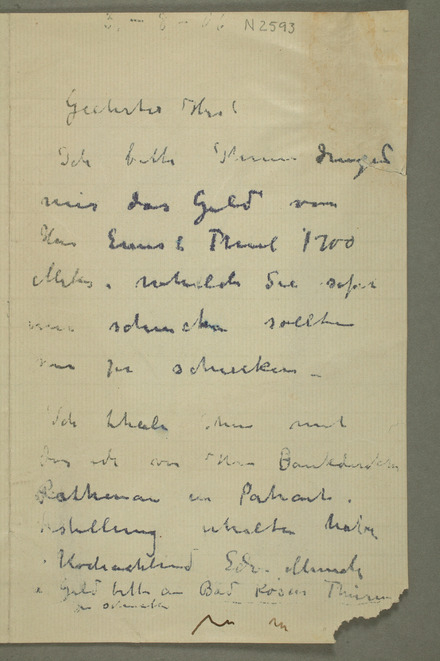 3. – 8 – 06 N2593
Geehrter Herr!
Ich bitte Ihnen dringend
mir das Geld von
Herr Ernest Thiel 1700
Mark, welche Sie sofort
mir schicken sollten
mir zu schicken –
Ich theile Ihnen mit
das ich von Herr Bankdirektor
Rathenau ein Portrait.
Bestellung erhalten habe
Hochachtend Edv. Munch
Geld bitte an Bad Kösen Thüringen
zu schicken